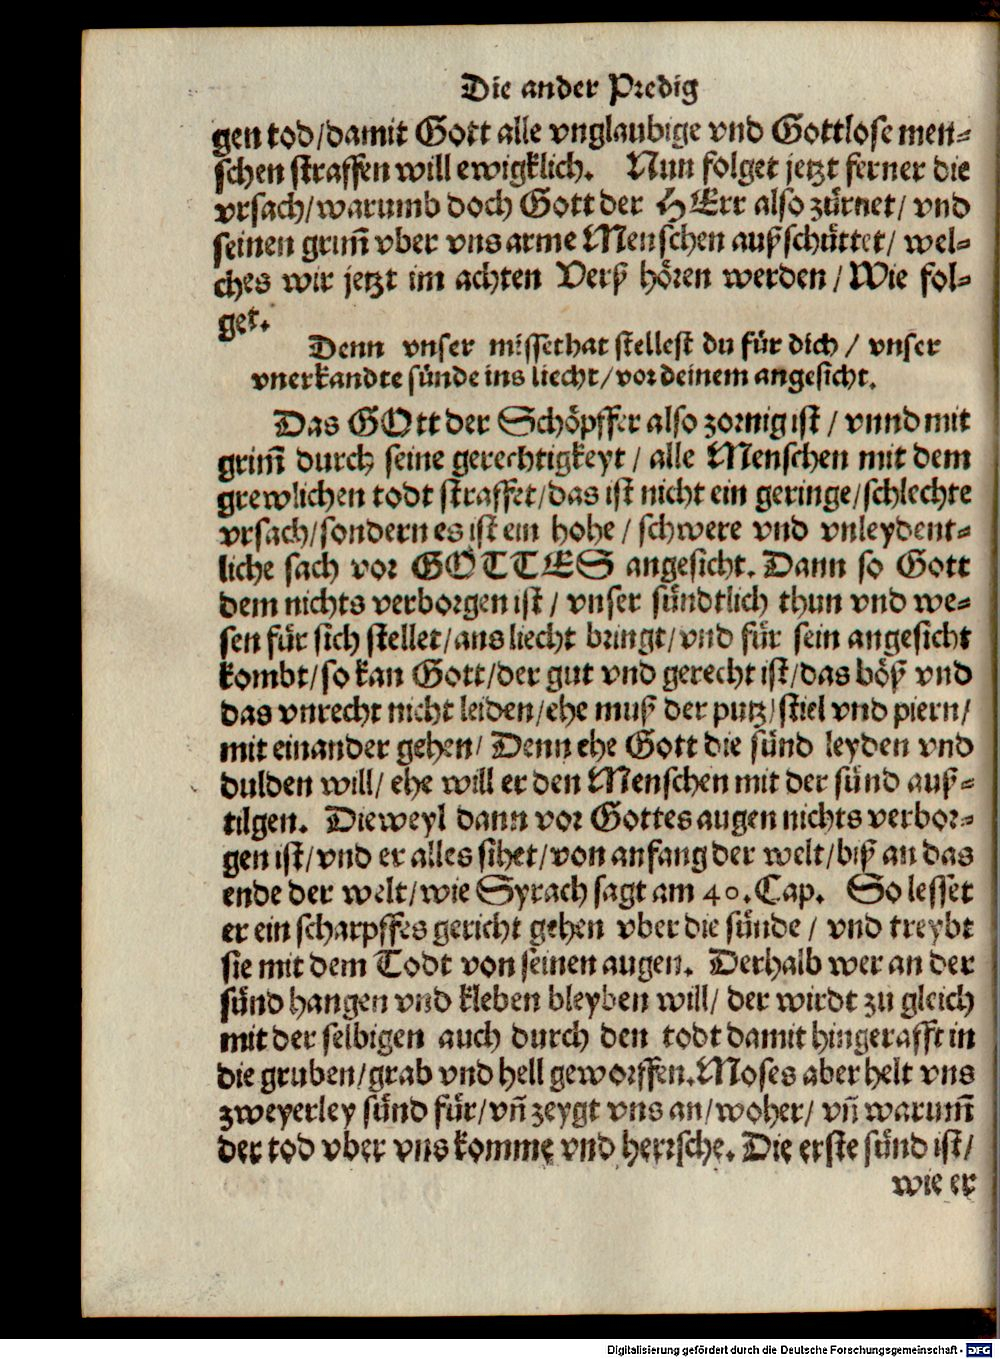 Die ander Predig
gen tod/damit Gott alle vnglaubige vnd Gottlose men-
schen straffen will ewigklich. Nun folget jetzt ferner die
vrsach/warumb doch Gott der HErr also zürnet/ vnd
seinen grim̃ vber vns arme Menschen außschüttet/ wel-
ches wir jetzt im achten Verß hören werden/ Wie fol-
get.
Denn vnser missethat stellest du für dich/ vnser
vnerkandte sünde ins liecht/vor deinem angesicht.
Das GOtt der Schöpffer also zornig ist/ vnnd mit
grim̃ durch seine gerechtigkeyt/ alle Menschen mit dem
grewlichen todt straffet/das ist nicht ein geringe/schlechte
vrsach/sondern es ist ein hohe/ schwere vnd vnleydent-
liche sach vor GOTTES angesicht. Dann so Gott
dem nichts verborgen ist/ vnser sündtlich thun vnd we-
sen für sich stellet/ans liecht bringt/vnd für sein angesicht
kombt/so kan Gott/der gut vnd gerecht ist/das böß vnd
das vnrecht nicht leiden/ehe muß der putz/stiel vnd piern/
mit einander gehen/ Denn ehe Gott die sünd leyden vnd
dulden will/ ehe will er den Menschen mit der sünd auß-
tilgen. Dieweyl dann vor Gottes augen nichts verbor-
gen ist/vnd er alles sihet/von anfang der welt/biß an das
ende der welt/wie Syrach sagt am 40.Cap. So lesset
er ein scharpffes gericht gehen vber die sünde/ vnd treybt
sie mit dem Todt von seinen augen. Derhalb wer an der
sünd hangen vnd kleben bleyben will/ der wirdt zu gleich
mit der selbigen auch durch den todt damit hingerafft in
die gruben/grab vnd hell geworffen. Moses aber helt vns
zweyerley sünd für/vñ zeygt vns an/woher/ vñ warum̃
der tod vber vns komme vnd herrsche. Die erste sünd ist/
wie er
Digitalisierung gefördert durch die Deutsche Forschungsgemeinschaft - DFG